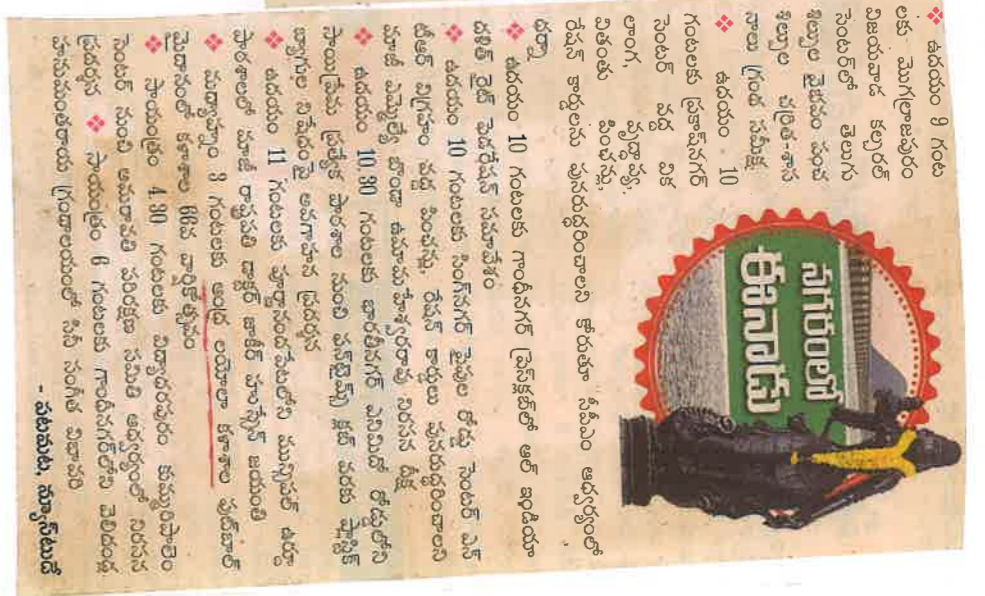 ❖ ఉదయం 9 గంట
లకు మొగల్రాజపురం
విజయవాడ కల్చరల్
సెంటర్‌లో తెలుగు
శిల్పాల వైభవం పంచ
శిల్పాల చరిత్ర-శాస
నాలు గ్రంథ సమీక్ష
❖ ఉదయం 10
గంటలకు ప్రకాష్‌నగర్
సెంటర్ వద్ద విక
లాంగ, వృద్ధాప్య,
వితంతు పింఛన్లు,
రేషన్ కార్డులను పునరుద్ధరించాలని కోరుతూ సీపీఎం ఆధ్వర్యంలో
ధర్నా
❖ ఉదయం 10 గంటలకు గాంధీనగర్ ప్రెస్‌క్లబ్‌లో ఆల్ ఇండియా
దళిత్ రైట్ ఫెడరేషన్ సమావేశం
❖ ఉదయం 10 గంటలకు సింగ్‌నగర్ పైపుల రోడ్డు సెంటర్ ఎన్
టీఆర్ విగ్రహం వద్ద పింఛన్లు, రేషన్ కార్డులు పునరుద్ధరించాలని
మాజీ ఎమ్మెల్యే బొండా ఉమామహేశ్వరరావు నిరసన దీక్ష
❖ ఉదయం 10.30 గంటలకు భారతీనగర్ ఎనిమిదో రోడ్డులోని
సాయిప్రేమ ప్రత్యేక పాఠశాల నుంచి ఫన్‌టైమ్స్ క్లబ్ వరకు ప్లాస్టిక్
బ్యాగుల నిషేధంపై అవగాహన ప్రదర్శన
❖ ఉదయం 11 గంటలకు పూర్ణానందపేటలోని మున్సిపల్ ఉర్దూ
పాఠశాలలో మాజీ రాష్ట్రపతి డాక్టర్ జాకీర్ హుస్సేన్ జయంతి
❖ మధ్యాహ్నం 3 గంటలకు ఆంధ్ర లయోలా కళాశాల ఫుట్‌బాల్
మైదానంలో కళాశాల 66వ వార్షికోత్సవం
❖ సాయంత్రం 4.30 గంటలకు విద్యాధరపురం కుమ్మరిపాలెం
సెంటర్ నుంచి అమరావతి పరిరక్షణ సమితి ఆధ్వర్యంలో నిరసన
ప్రదర్శన ❖ సాయంత్రం 6 గంటలకు గాంధీనగర్‌లోని వెలిదండ్ల
హనుమంతరాయ గ్రంథాలయంలో సినీ సంగీత విభావరి
- పటమట, న్యూస్‌టుడే
నగరంలో
ఈనాడు